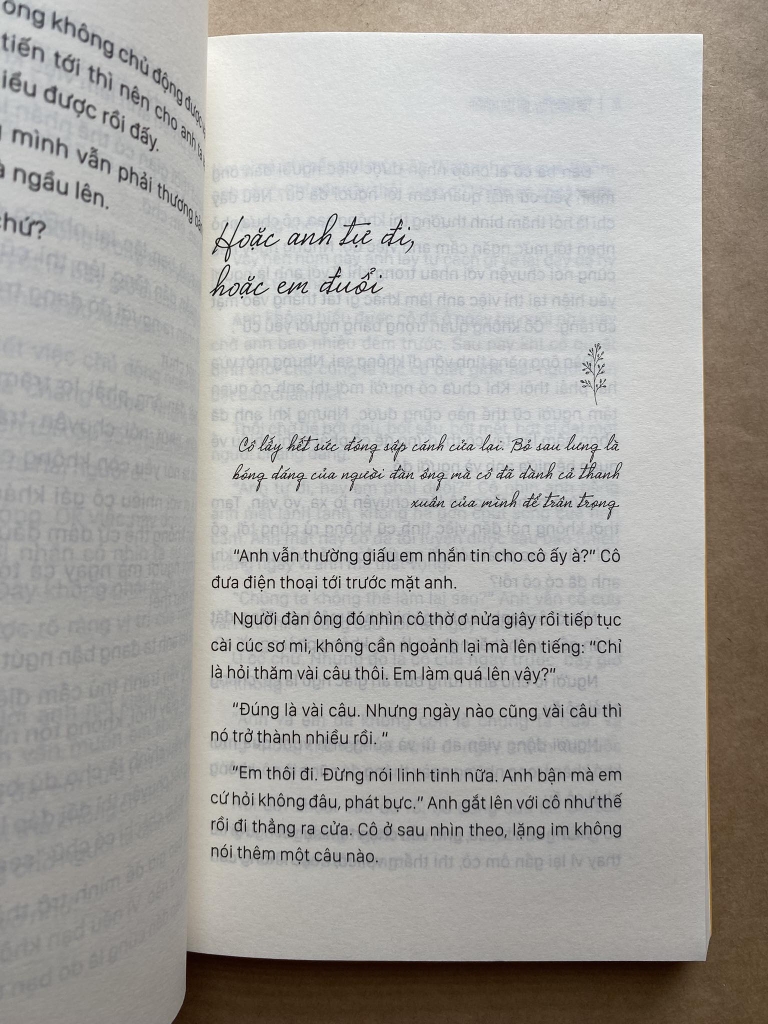 ông không chủ động được
tiến tới thì nên cho anh ta
iểu được rồi đấy.
mình vẫn phải thương
à ngầu lên.
chứ?
Hoặc anh tự đi,
hoặc em đuổi
Cô lấy hết sức đóng sập cánh cửa lại. Bỏ sau lưng là
bóng dáng của người đàn ông mà cô đã dành cả thanh
xuân của mình để trân trọng
“Anh vẫn thường giấu em nhắn tin cho cô ấy à?” Cô
đưa điện thoại tới trước mặt anh.
Người đàn ông đó nhìn cô thờ ơ nửa giây rồi tiếp tục
cài cúc sơ mi, không cần ngoảnh lại mà lên tiếng: “Chỉ
là hỏi thăm vài câu thôi. Em làm quá lên vậy?”
“Đúng là vài câu. Nhưng ngày nào cũng vài câu thì
nó trở thành nhiều rồi. “
“Em thôi đi. Đừng nói linh tinh nữa. Anh bận mà em
cứ hỏi không đâu, phát bực.” Anh gắt lên với cô như thế
rồi đi thẳng ra cửa. Cô ở sau nhìn theo, lặng im không
nói thêm một câu nào.